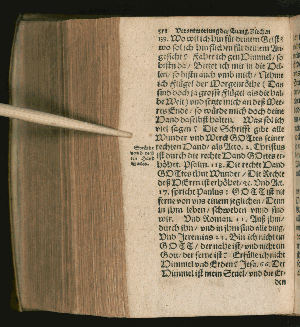 512 Verantwortung der Evang. Kirchen
139. Wo wil ich hin für deinem Geist?
wo sol ich hin fliehen für deinem An-
gesicht? Fahre ich gen Himmel / so
bistu da / Bettet ich mir in die Hel-
len / so bistu auch da / Nehme
ich flügel der Morgenröhte /
vnd bliebe am
Welt / vnd
ten Ende / so würde mich doch deine
Hand daselbst halten. Was sol ich
viel sagen? Die Schrifft gibt alle
Wunder vnd Werck Gottes seiner
rechten Hand / als Acto. 2. Christus
ist durch die rechte Hand Gottes er-
höhet. Psalm. 118. Die rechte Hand
GOttes thut Wunder / Die Rechte
deß HErrn ist erhöhet / Vnd Act.
17. spricht Paulus: GOTT ist nit
ferne von uns einem jeglichen / Denn
in ihm leben / schweben vnd sind
wir. Vnd Roman. 11. Auß ihm /
durch ihn / vnd in ihm sind alle ding.
Vnd Jeremias 23. Bin ich nicht ein
GOTT / der nahe ist / vnd nicht ein
Gott / der ferne ist? Erfülle ich nicht
Himmel vnd Erden? Jesa. 66. Der
Himmel ist mein Stuel / vnd die Er-
den